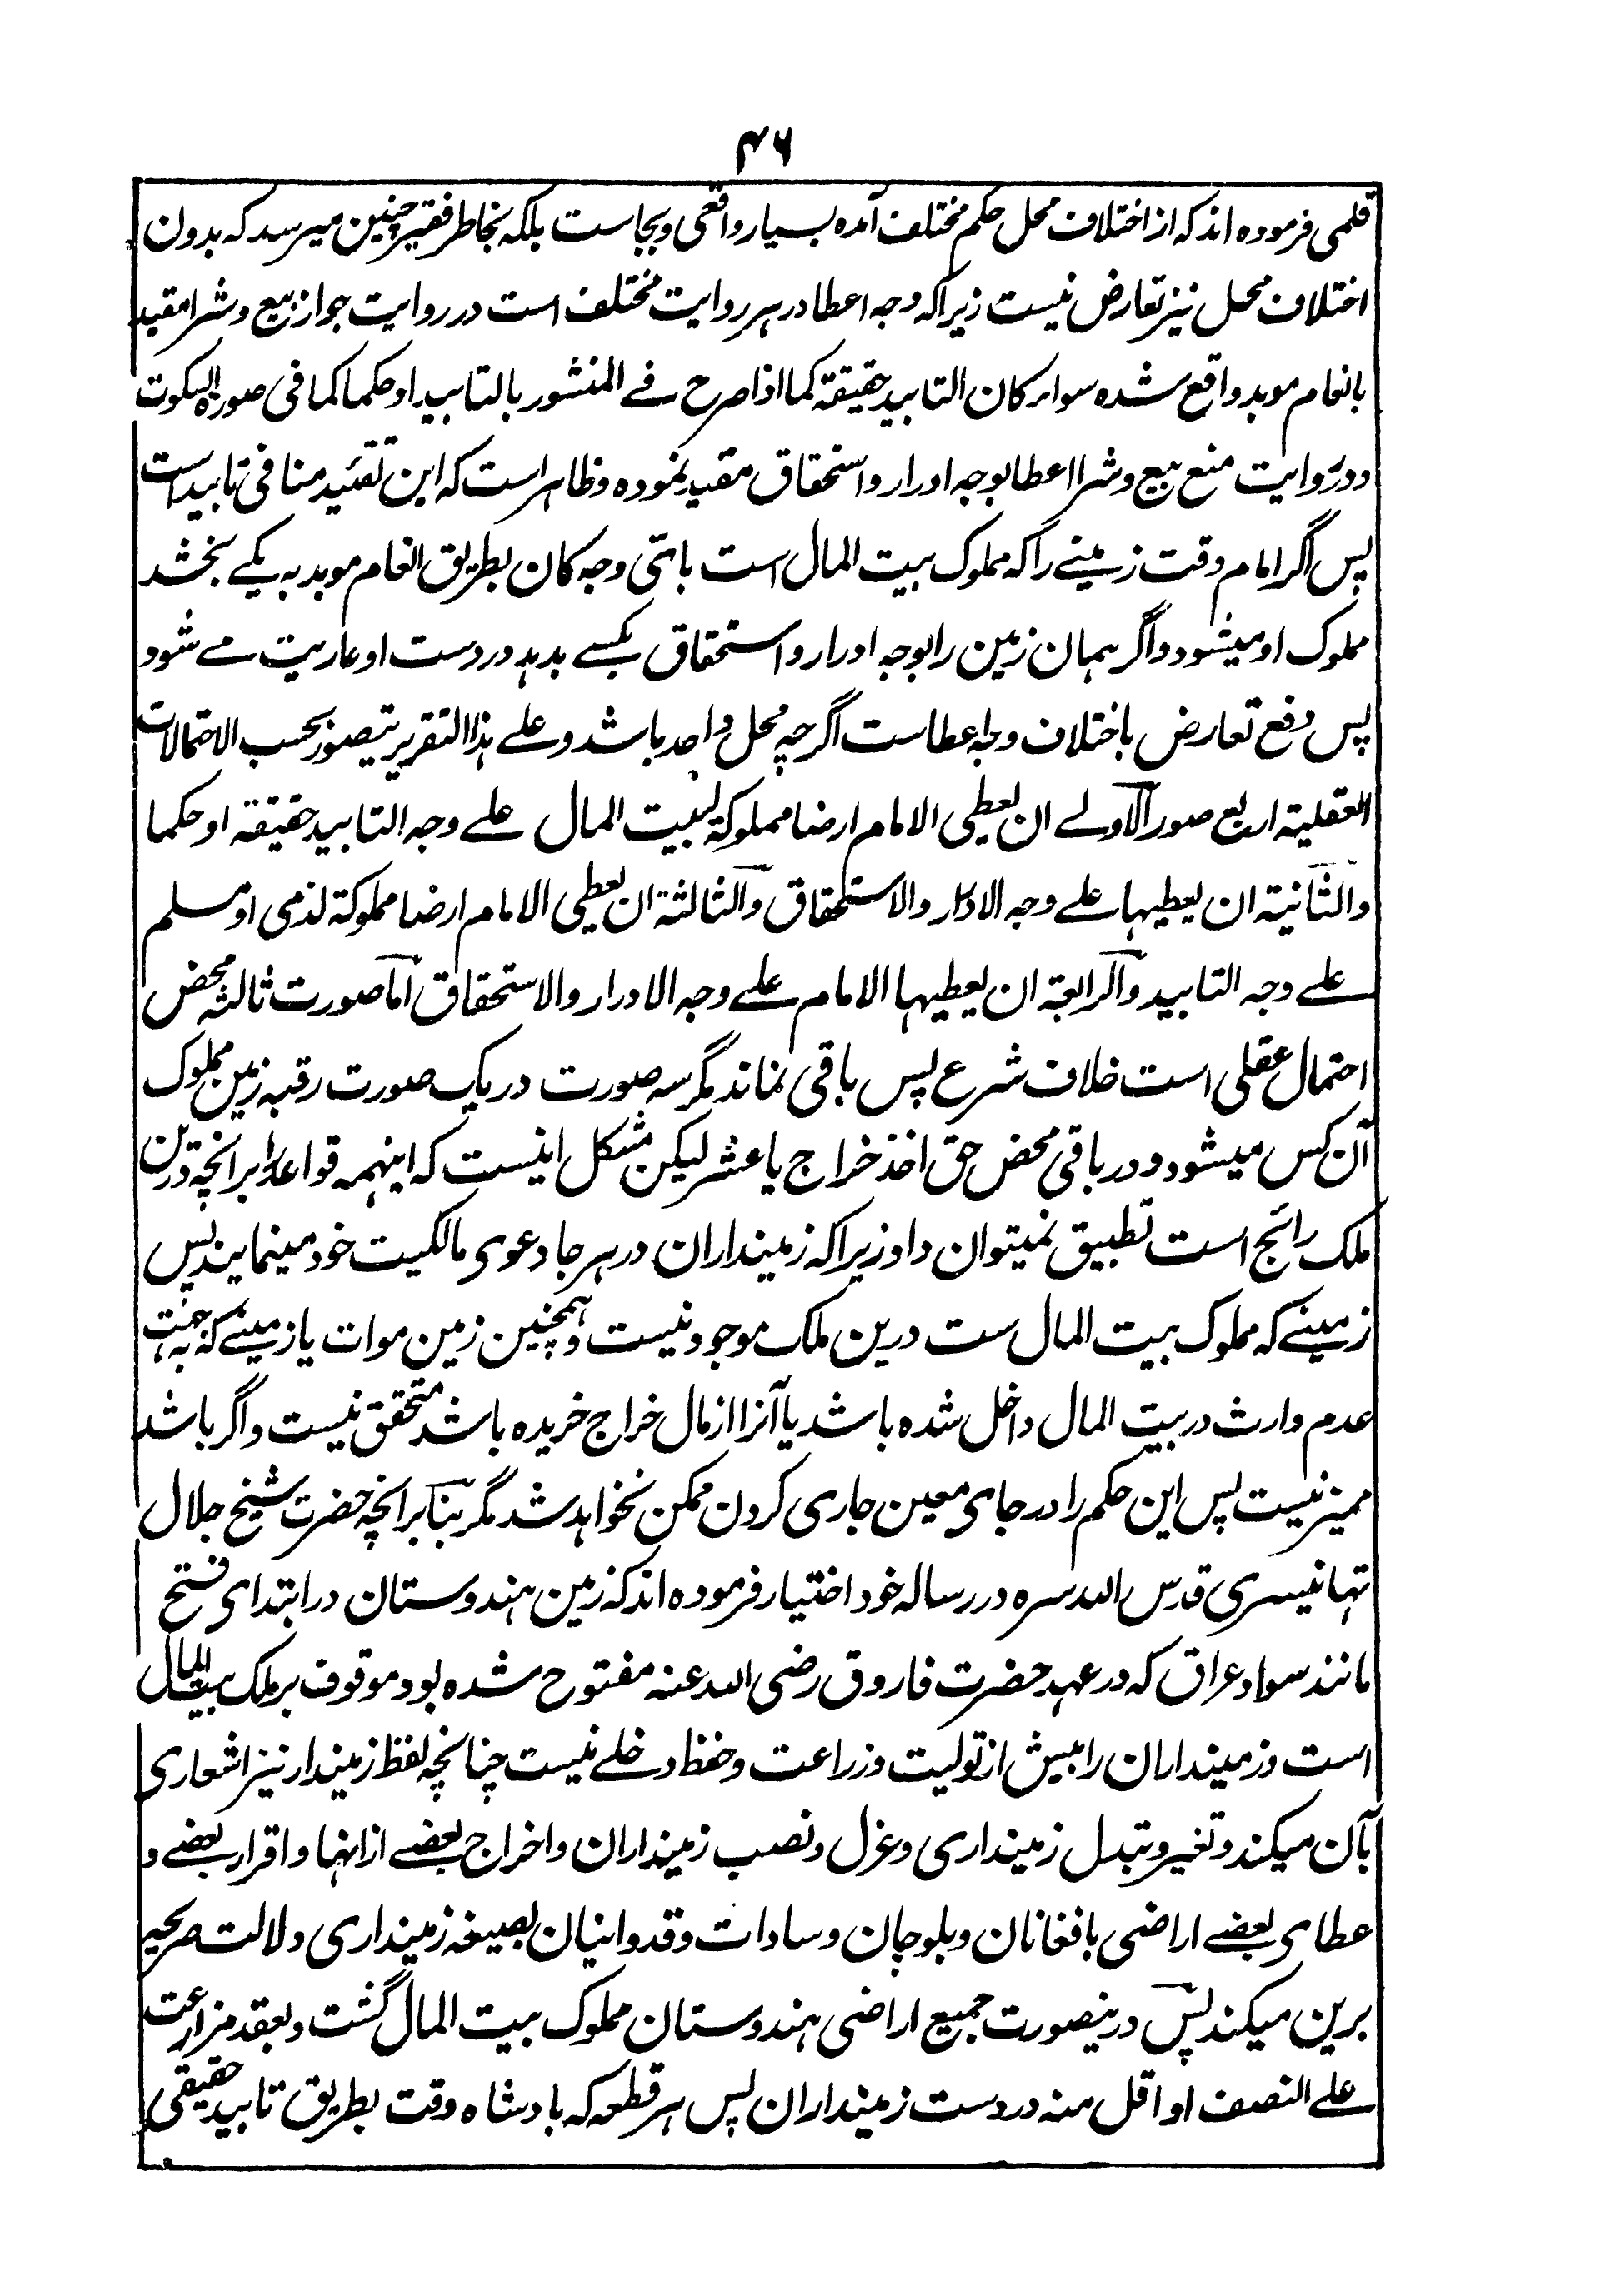 ۴۶
قلمی فرموده اند که از اختلاف محل حکم مختلف آمده بسیار واقعی و بجاست بلکه بخاطر فقیر چنین میرسد که بدون
اختلاف محل نیز تعارض نیست زیراکه وجه اعطا در هر روایت مختلف است در روایت جواز بیع و شرا مقید
بانعام موبد واقع شده سواء کان التابید حقیقة کما اذا صرح فے المنشور بالتابید او حکما کما فی صورة السکوت
و در روایت منع بیع و شرا اعطا بوجه ادرار و استحقاق مقید نموده و ظاهر است که این تقئید منافی تابید است
پس اگر امام وقت زمینے را که مملوک بیت المال است بای وجه کان بطریق انعام موبد به یکے بخشد
مملوک او میشود و اگر همان زمین را بوجه ادرار و استحقاق بکسے بدهد در دست او عاریت مے شود
پس دفع تعارض باختلاف وجه اعطاست اگرچه محل واحد باشد و علے هذا التقریر یتصور بحسب الاحتمالات
العقلیة اربع صور الاولے ان یعطی الامام ارضا مملوکة لبیت المال علے وجه التابید حقیقة او حکما
والثانیة ان یعطیها علے وجه الادرار والاستحقاق والثالثة ان یعطی الامام ارضا مملوکة لذمی او مسلم
علے وجه التابید والرابعة ان یعطیها الامام علے وجه الادرار والاستحقاق اما صورت ثالثه محض
احتمال عقلی است خلاف شرع پس باقی نماند مگر سه صورت در یک صورت رقبه زمین مملوک
آن کس میشود و در باقی محض حق اخذ خراج یا عشر لیکن مشکل اینست که اینهمه قواعد را برانچه درین
ملک رائج است تطبیق نمیتوان داد زیراکه زمینداران در هر جا دعوی مالکیت خود مینمایند پس
زمینے که مملوک بیت المال ست درین ملک موجود نیست و همچنین زمین موات یا زمینے که به جهت
عدم وارث در بیت المال داخل شده باشد یا آنرا از مال خراج خریده باشد متحقق نیست و اگر باشد
ممیز نیست پس این حکم را در جای معین جاری کردن ممکن نخواهد شد مگر بنا بر انچه حضرت شیخ جلال
تهانیسری قدس الله سره در رساله خود اختیار فرموده اند که زمین هندوستان در ابتدای فتح
مانند سواد عراق که در عهد حضرت فاروق رضی الله عنه مفتوح شده بود موقوف بر ملک بیت المال
است و زمینداران را بیش از تولیت و زراعت و حفظ دخلے نیست چنانچه لفظ زمیندار نیز اشعاری
بآن میکند و تغیر و تبدل زمینداری و عزل و نصب زمینداران و اخراج بعضے از انها و اقرار بعضے و
عطای بعضے اراضی بافغانان و بلوچان و سادات و قدوائیان بصیغه زمینداری دلالت صریحه
برین میکند پس درینصورت جمیع اراضی هندوستان مملوک بیت المال گشت و بعقد مزارعت
علے النصف او اقل منه در دست زمینداران پس هر قطعه که بادشاه وقت بطریق تابید حقیقی